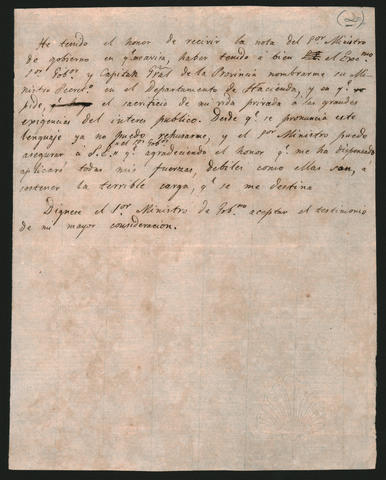 2
He tenido el honor de recivir la nota del Sor Ministro
de gobierno en q.e me avisa, haber tenido á bien el Exc.mo
S.or Gob.or y Capitan Gral de la Provincia nombrarme su Mi-
nistro Secret.o en el Departamento de Hacienda, y en q.e se
pide, el sacrificio de mi vida privada á las grandes
exigencias del interes publico. Desde q.e se pronuncia este
lenguaje ya no puedo rehusarme, y el S.or Ministro puede
asegurar á S.E. q.e agradeciendo el honor q.e me ha dispensado
aplicaré todas mis fuerzas, debiles como ellas son, a
sostener la terrible carga, q.e se me destina
Dignese el S.or Ministro de Gob.no aceptar el testimonio
de mi mayor consideracion.